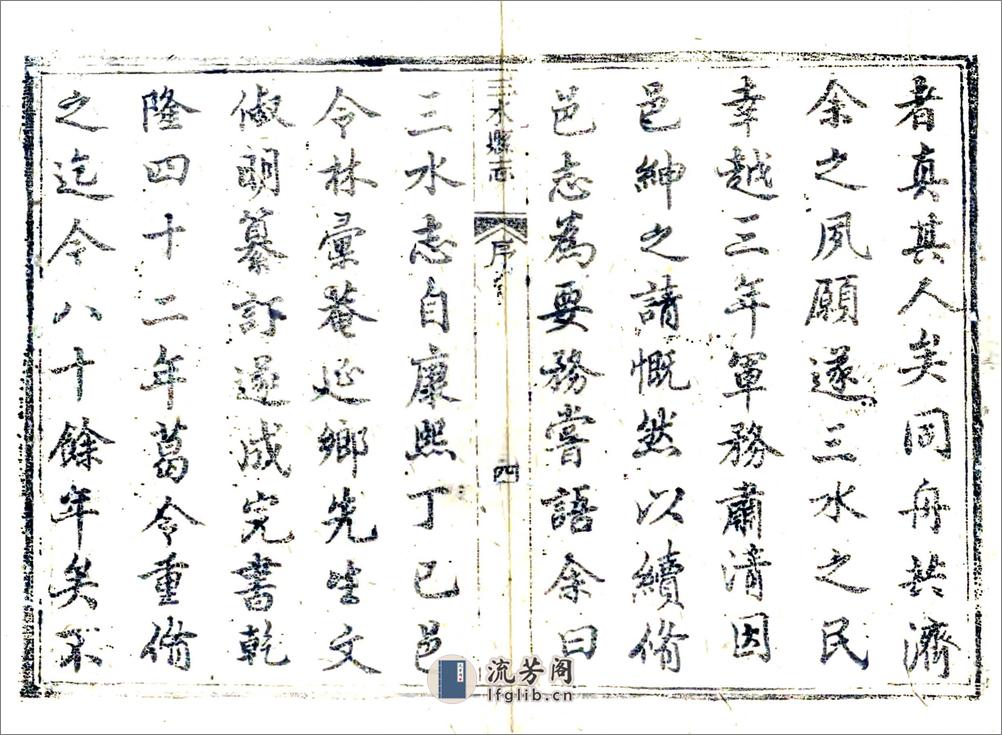 者真其人矣同舟共濟
余之夙願遂三水之民
幸越三年軍務肅清因
邑紳之請慨然以續脩
邑志為要務嘗語余曰
三水縣志
序
四
三水志自康熙丁巳邑
令林彙菴延鄉先生文
俶明纂訂遂成完書乾
隆四十二年葛令重脩
之迄今八十餘年矣不
流芳阁
lfglib.cn